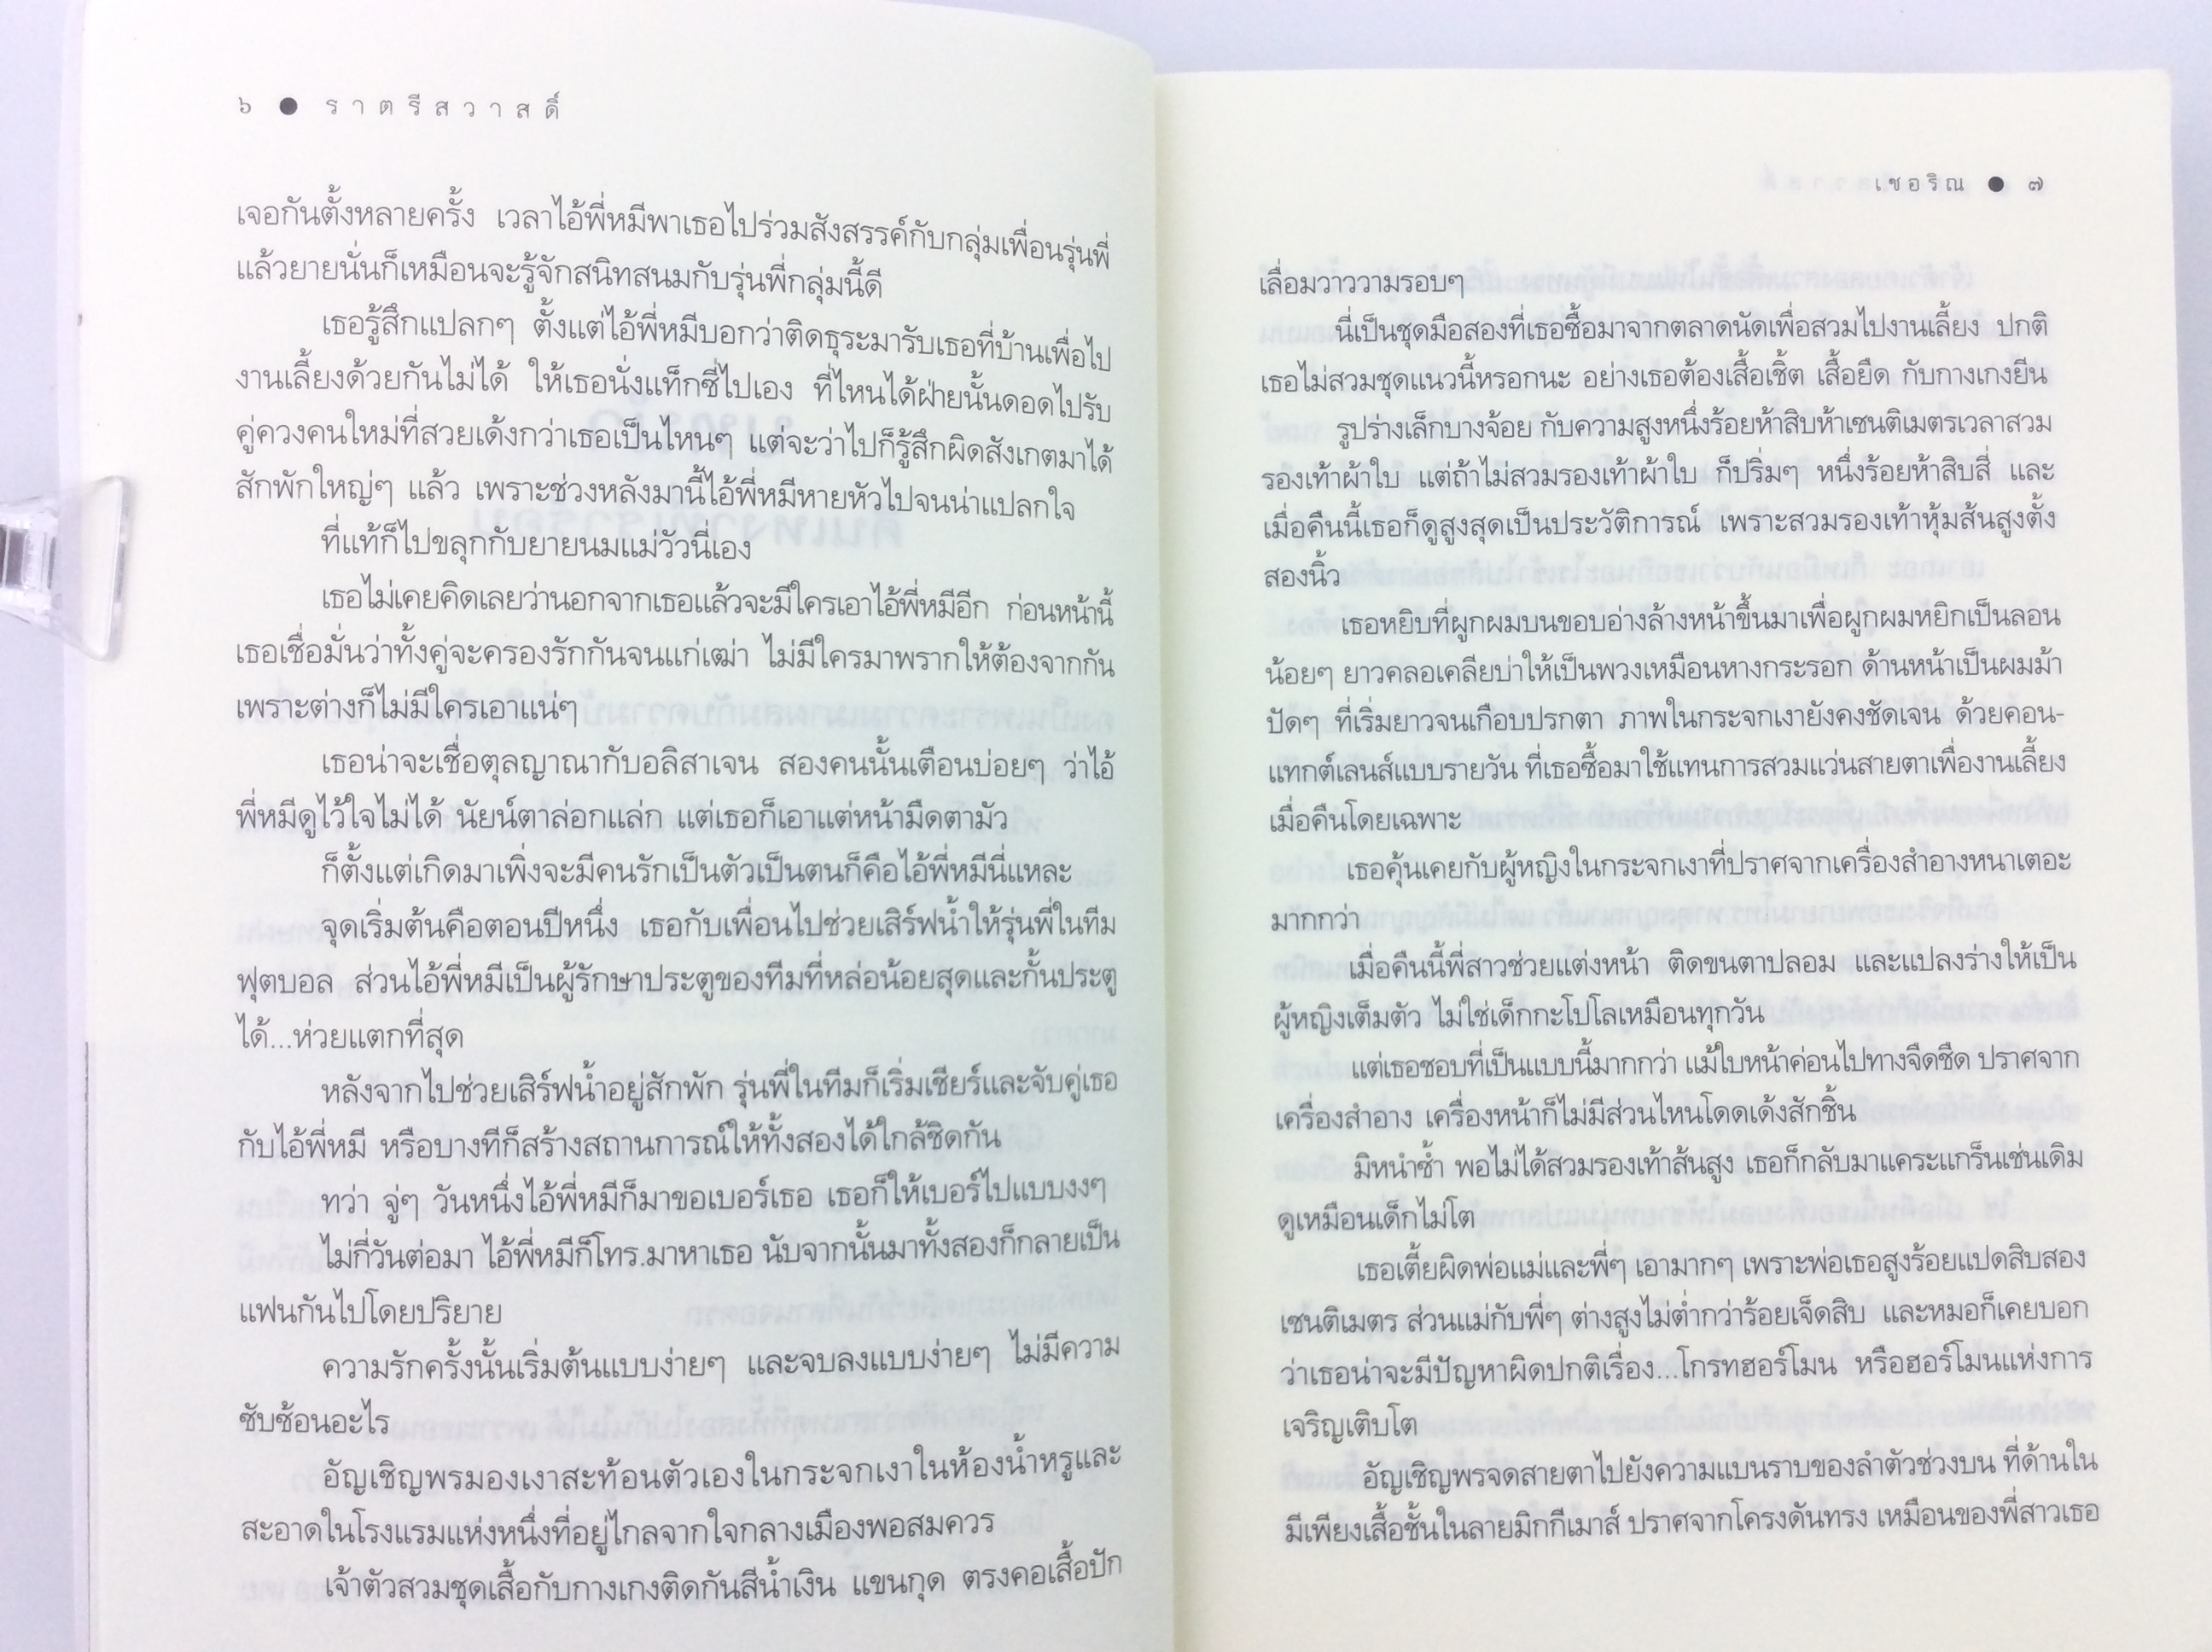 ๖ ● ราตรีสวาสดิ์
เจอกันตั้งหลายครั้ง เวลาไอ้พี่หมีพาเธอไปร่วมสังสรรค์กับกลุ่มเพื่อนรุ่นพี่
แล้วยายนั่นก็เหมือนจะรู้จักสนิทสนมกับรุ่นพี่กลุ่มนี้ดี
เธอรู้สึกแปลกๆ ตั้งแต่ไอ้พี่หมีบอกว่าติดธุระมารับเธอที่บ้านเพื่อไป
งานเลี้ยงด้วยกันไม่ได้ ให้เธอนั่งแท็กซี่ไปเอง ที่ไหนได้ฝ่ายนั้นดอดไปรับ
คู่ควงคนใหม่ที่สวยเด้งกว่าเธอเป็นไหนๆ แต่จะว่าไปก็รู้สึกผิดสังเกตมาได้
สักพักใหญ่ๆ แล้ว เพราะช่วงหลังมานี้ไอ้พี่หมีหายหัวไปจนน่าแปลกใจ
ที่แท้ก็ไปขลุกกับยายนมแม่วัวนี่เอง
เธอไม่เคยคิดเลยว่านอกจากเธอแล้วจะมีใครเอาไอ้พี่หมีอีก ก่อนหน้านี้
เธอเชื่อมั่นว่าทั้งคู่จะครองรักกันจนแก่เฒ่า ไม่มีใครมาพรากให้ต้องจากกัน
เพราะต่างก็ไม่มีใครเอาแน่ๆ
เธอน่าจะเชื่อตุลญาณากับอลิสาเจน สองคนนั้นเตือนบ่อยๆ ว่าไอ้
พี่หมีดูไว้ใจไม่ได้ นัยน์ตาล่อกแล่ก แต่เธอก็เอาแต่หน้ามืดตามัว
ก็ตั้งแต่เกิดมาเพิ่งจะมีคนรักเป็นตัวเป็นตนก็คือไอ้พี่หมีนี่แหละ
จุดเริ่มต้นคือตอนปีหนึ่ง เธอกับเพื่อนไปช่วยเสิร์ฟน้ำให้รุ่นพี่ในทีม
ฟุตบอล ส่วนไอ้พี่หมีเป็นผู้รักษาประตูของทีมที่หล่อน้อยสุดและกั้นประตู
ได้...ห่วยแตกที่สุด
หลังจากไปช่วยเสิร์ฟน้ำอยู่สักพัก รุ่นพี่ในทีมก็เริ่มเชียร์และจับคู่เธอ
กับไอ้พี่หมี หรือบางทีก็สร้างสถานการณ์ให้ทั้งสองได้ใกล้ชิดกัน
ทว่า จู่ๆ วันหนึ่งไอ้พี่หมีก็มาขอเบอร์เธอ เธอก็ให้เบอร์ไปแบบงงๆ
ไม่กี่วันต่อมา ไอ้พี่หมีก็โทร.มาหาเธอ นับจากนั้นมาทั้งสองก็กลายเป็น
แฟนกันไปโดยปริยาย
ความรักครั้งนั้นเริ่มต้นแบบง่ายๆ และจบลงแบบง่ายๆ ไม่มีความ
ซับซ้อนอะไร
อัญเชิญพรมองเงาสะท้อนตัวเองในกระจกเงาในห้องน้ำหรูและ
สะอาดในโรงแรมแห่งหนึ่งที่อยู่ไกลจากใจกลางเมืองพอสมควร
เจ้าตัวสวมชุดเสื้อกับกางเกงติดกันสีน้ำเงิน แขนกุด ตรงคอเสื้อปัก
เชอริณ ● ๗
เลื่อมวาววามรอบๆ
นี่เป็นชุดมือสองที่เธอซื้อมาจากตลาดนัดเพื่อสวมไปงานเลี้ยง ปกติ
เธอไม่สวมชุดแนวนี้หรอกนะ อย่างเธอต้องเสื้อเชิ้ต เสื้อยืด กับกางเกงยีน
รูปร่างเล็กบางจ้อย กับความสูงหนึ่งร้อยห้าสิบห้าเซนติเมตรเวลาสวม
รองเท้าผ้าใบ แต่ถ้าไม่สวมรองเท้าผ้าใบ ก็ปริ่มๆ หนึ่งร้อยห้าสิบสี่ และ
เมื่อคืนนี้เธอก็ดูสูงสุดเป็นประวัติการณ์ เพราะสวมรองเท้าหุ้มส้นสูงตั้ง
สองนิ้ว
เธอหยิบที่ผูกผมบนขอบอ่างล้างหน้าขึ้นมาเพื่อผูกผมหยิกเป็นลอน
น้อยๆ ยาวคลอเคลียบ่าให้เป็นพวงเหมือนหางกระรอก ด้านหน้าเป็นผมม้า
ปัดๆ ที่เริ่มยาวจนเกือบปรกตา ภาพในกระจกเงายังคงชัดเจน ด้วยคอน-
แทกต์เลนส์แบบรายวัน ที่เธอซื้อมาใช้แทนการสวมแว่นสายตาเพื่องานเลี้ยง
เมื่อคืนโดยเฉพาะ
เธอคุ้นเคยกับผู้หญิงในกระจกเงาที่ปราศจากเครื่องสำอางหนาเตอะ
มากกว่า
เมื่อคืนนี้พี่สาวช่วยแต่งหน้า ติดขนตาปลอม และแปลงร่างให้เป็น
ผู้หญิงเต็มตัว ไม่ใช่เด็กกะโปโลเหมือนทุกวัน
แต่เธอชอบที่เป็นแบบนี้มากกว่า แม้ใบหน้าค่อนไปทางจืดชืด ปราศจาก
เครื่องสำอาง เครื่องหน้าก็ไม่มีส่วนไหนโดดเด้งสักชิ้น
มิหนำซ้ำ พอไม่ได้สวมรองเท้าส้นสูง เธอก็กลับมาแคระแกร็นเช่นเดิม
ดูเหมือนเด็กไม่โต
เธอเตี้ยผิดพ่อแม่และพี่ๆ เอามากๆ เพราะพ่อเธอสูงร้อยแปดสิบสอง
เซนติเมตร ส่วนแม่กับพี่ๆ ต่างสูงไม่ต่ำกว่าร้อยเจ็ดสิบ และหมอก็เคยบอก
ว่าเธอน่าจะมีปัญหาผิดปกติเรื่อง...โกรทฮอร์โมน หรือฮอร์โมนแห่งการ
เจริญเติบโต
อัญเชิญพรจดสายตาไปยังความแบนราบของลำตัวช่วงบน ที่ด้านใน
มีเพียงเสื้อชั้นในลายมิกกี้เมาส์ ปราศจากโครงดันทรง เหมือนของพี่สาวเธอ